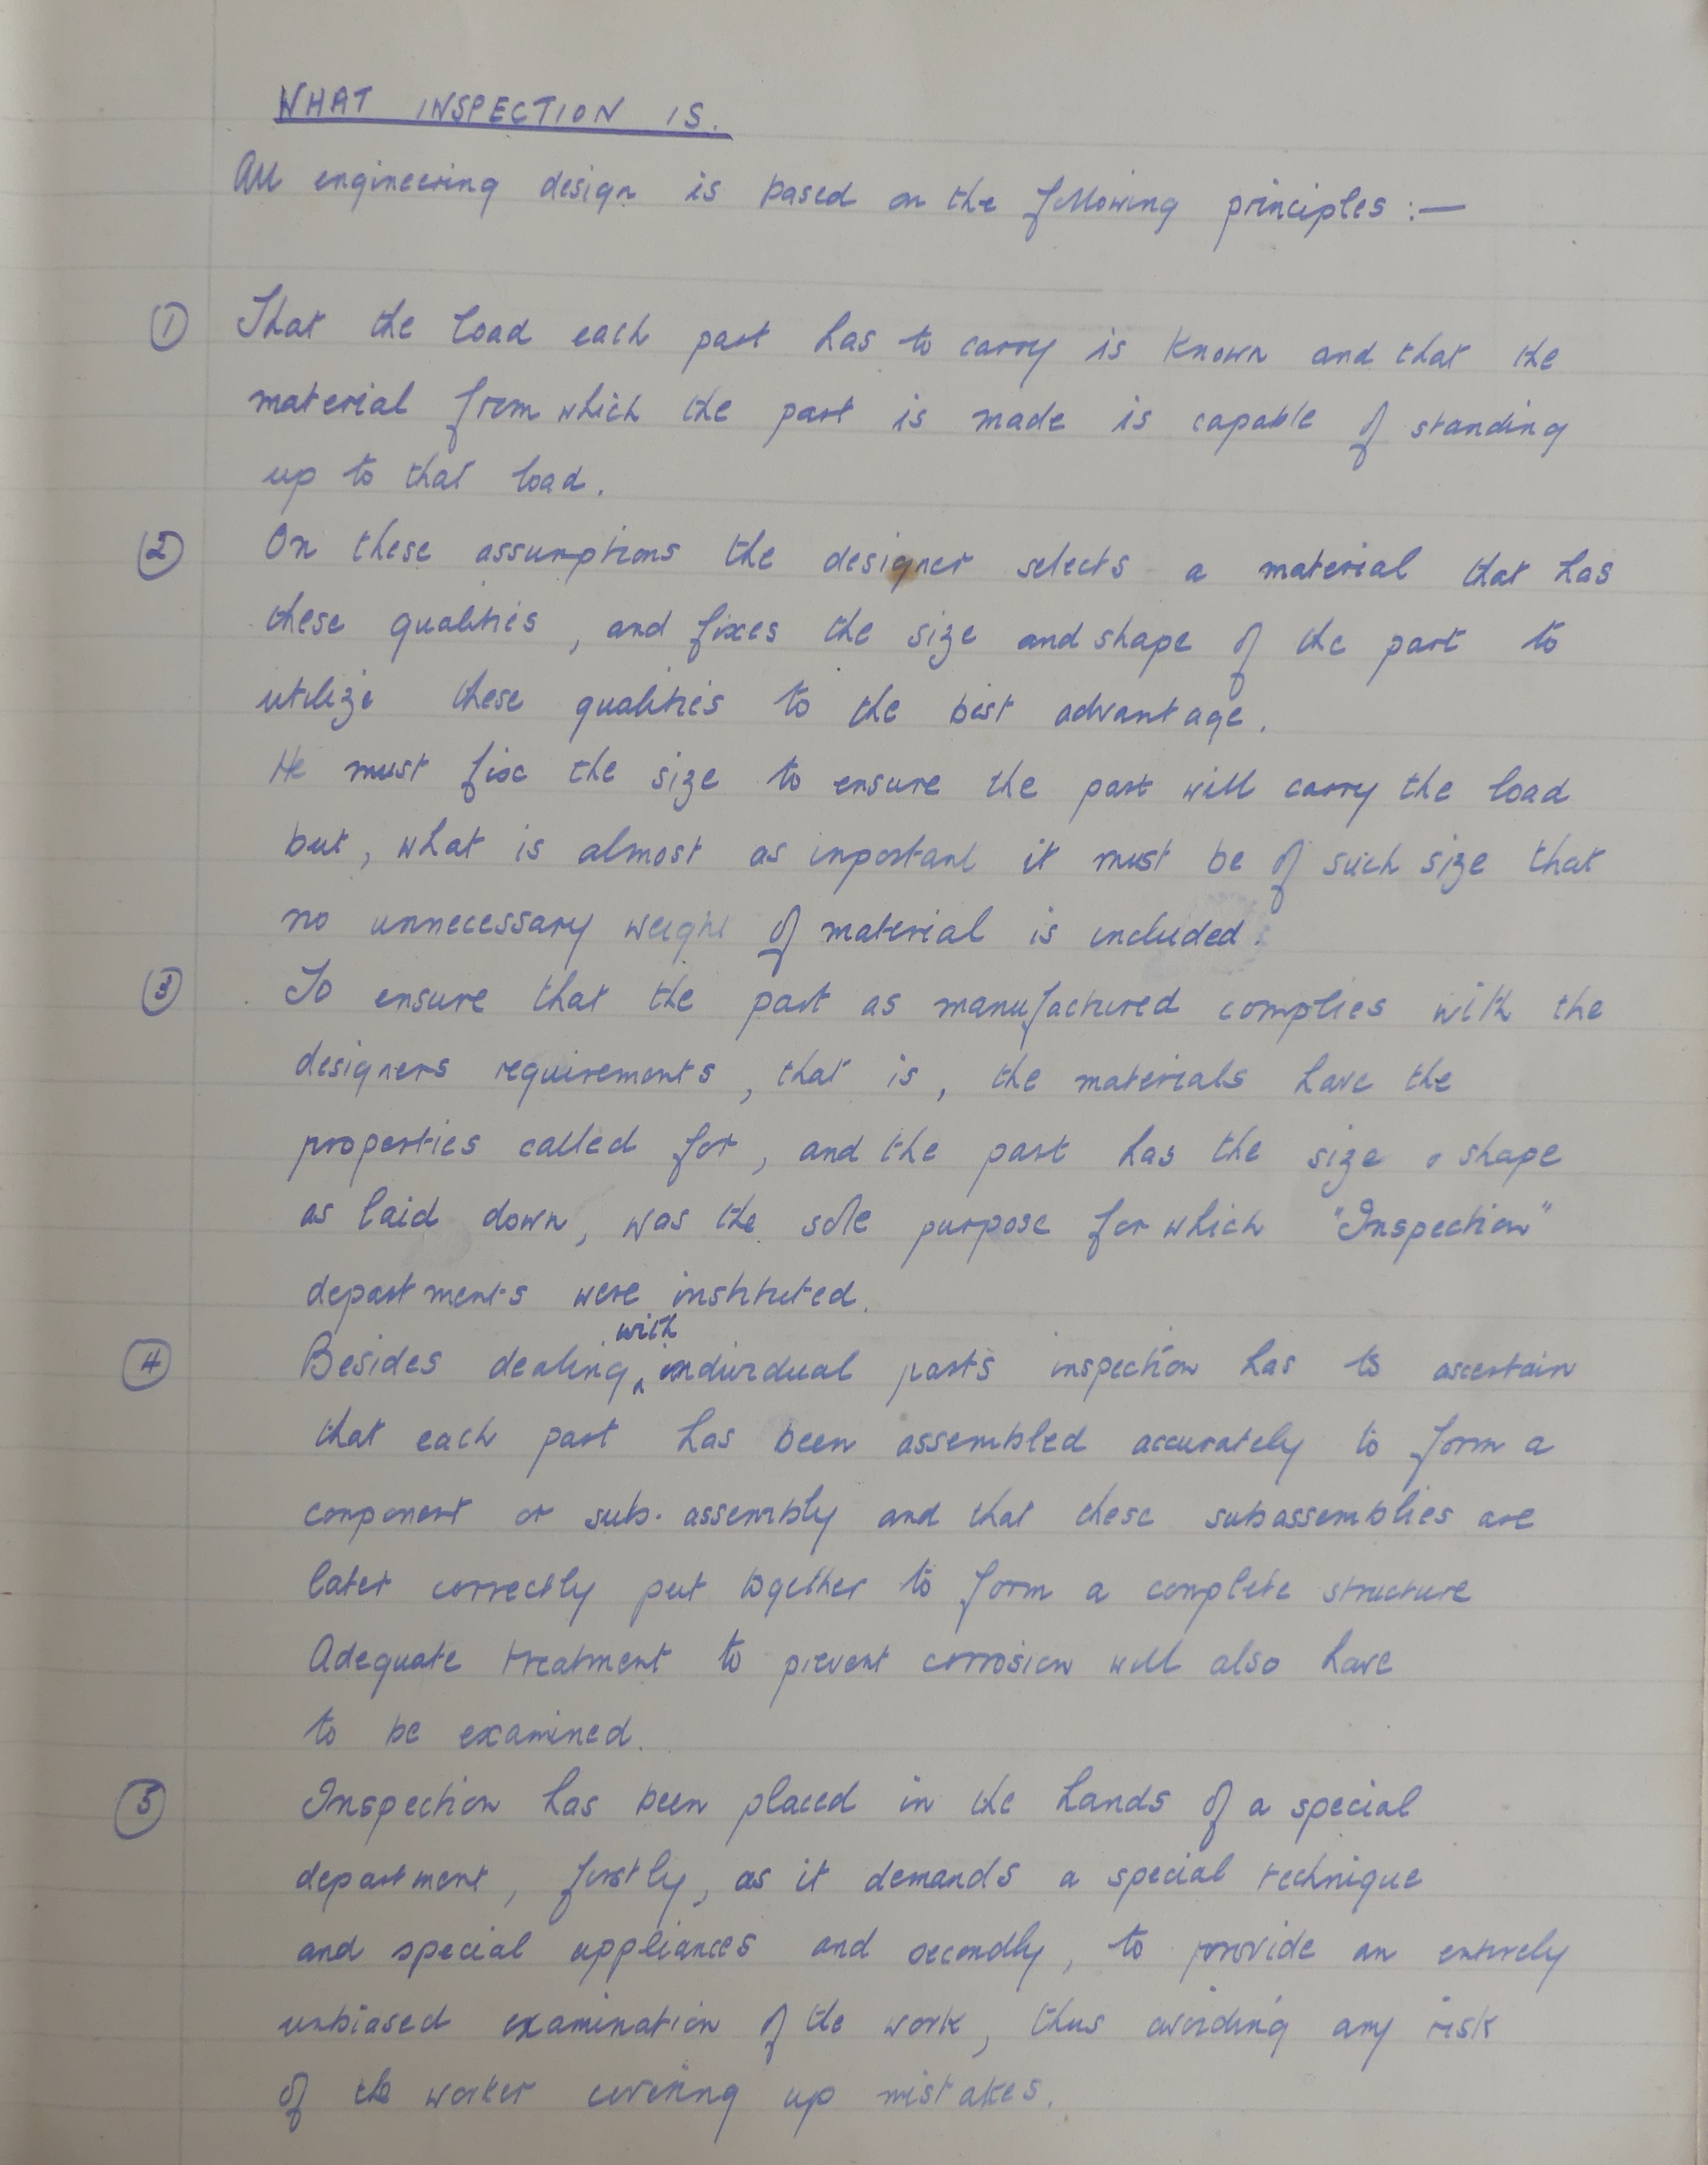 WHAT INSPECTION IS.
All engineering design is based on the following principles :—
① That the load each part has to carry is known and that the
material from which the part is made is capable of standing
up to that load.
② On these assumptions the designer selects a material that has
these qualities, and fixes the size and shape of the part to
utilize these qualities to the best advantage.
He must fix the size to ensure the part will carry the load
but, what is almost as important it must be of such size that
no unnecessary weight of material is included.
③ To ensure that the part as manufactured complies with the
designers requirements, that is, the materials have the
properties called for, and the part has the size & shape
as laid down, was the sole purpose for which "Inspection"
departments were instituted.
④ Besides dealing with individual parts inspection has to ascertain
that each part has been assembled accurately to form a
component or sub-assembly and that these subassemblies are
later correctly put together to form a complete structure
Adequate treatment to prevent corrosion will also have
to be examined.
⑤ Inspection has been placed in the hands of a special
department, firstly, as it demands a special technique
and special appliances and secondly, to provide an entirely
unbiased examination of the work, thus avoiding any risk
of the worker covering up mistakes.